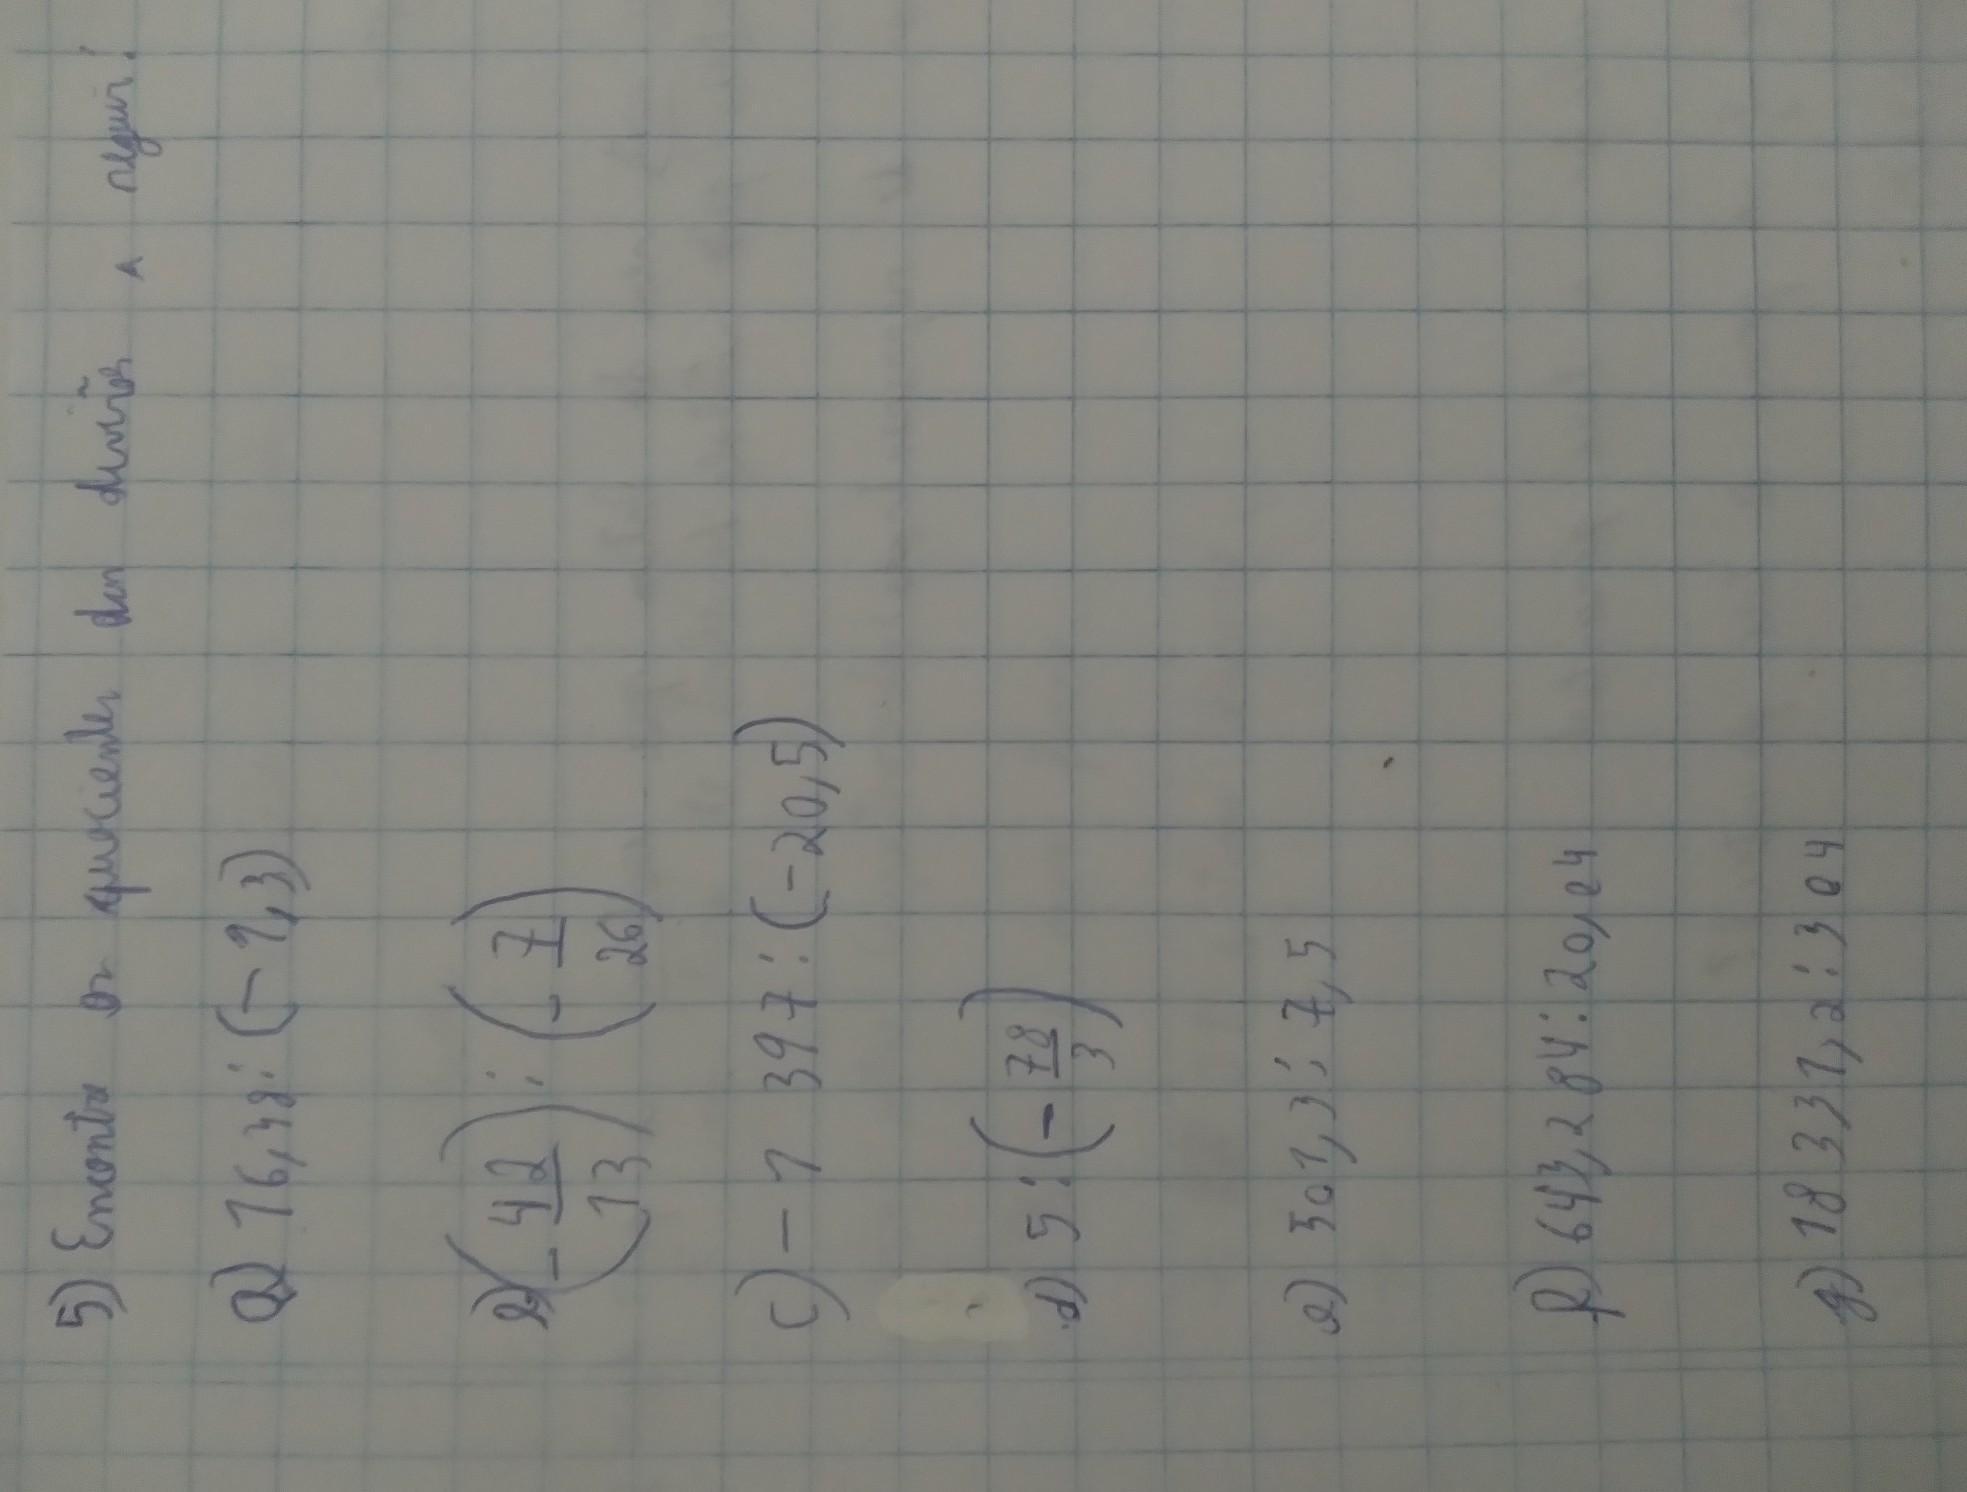 5) Encontre os quocientes das divisões a seguir:
a) 16,48 : (-1,3)
b) (-42/13) : (-7/26)
c) -1 397 : (-20,5)
d) 5 : (-78/3)
e) 301,3 : 7,5
f) 643,284 : 20,04
g) 18 331,2 : 304